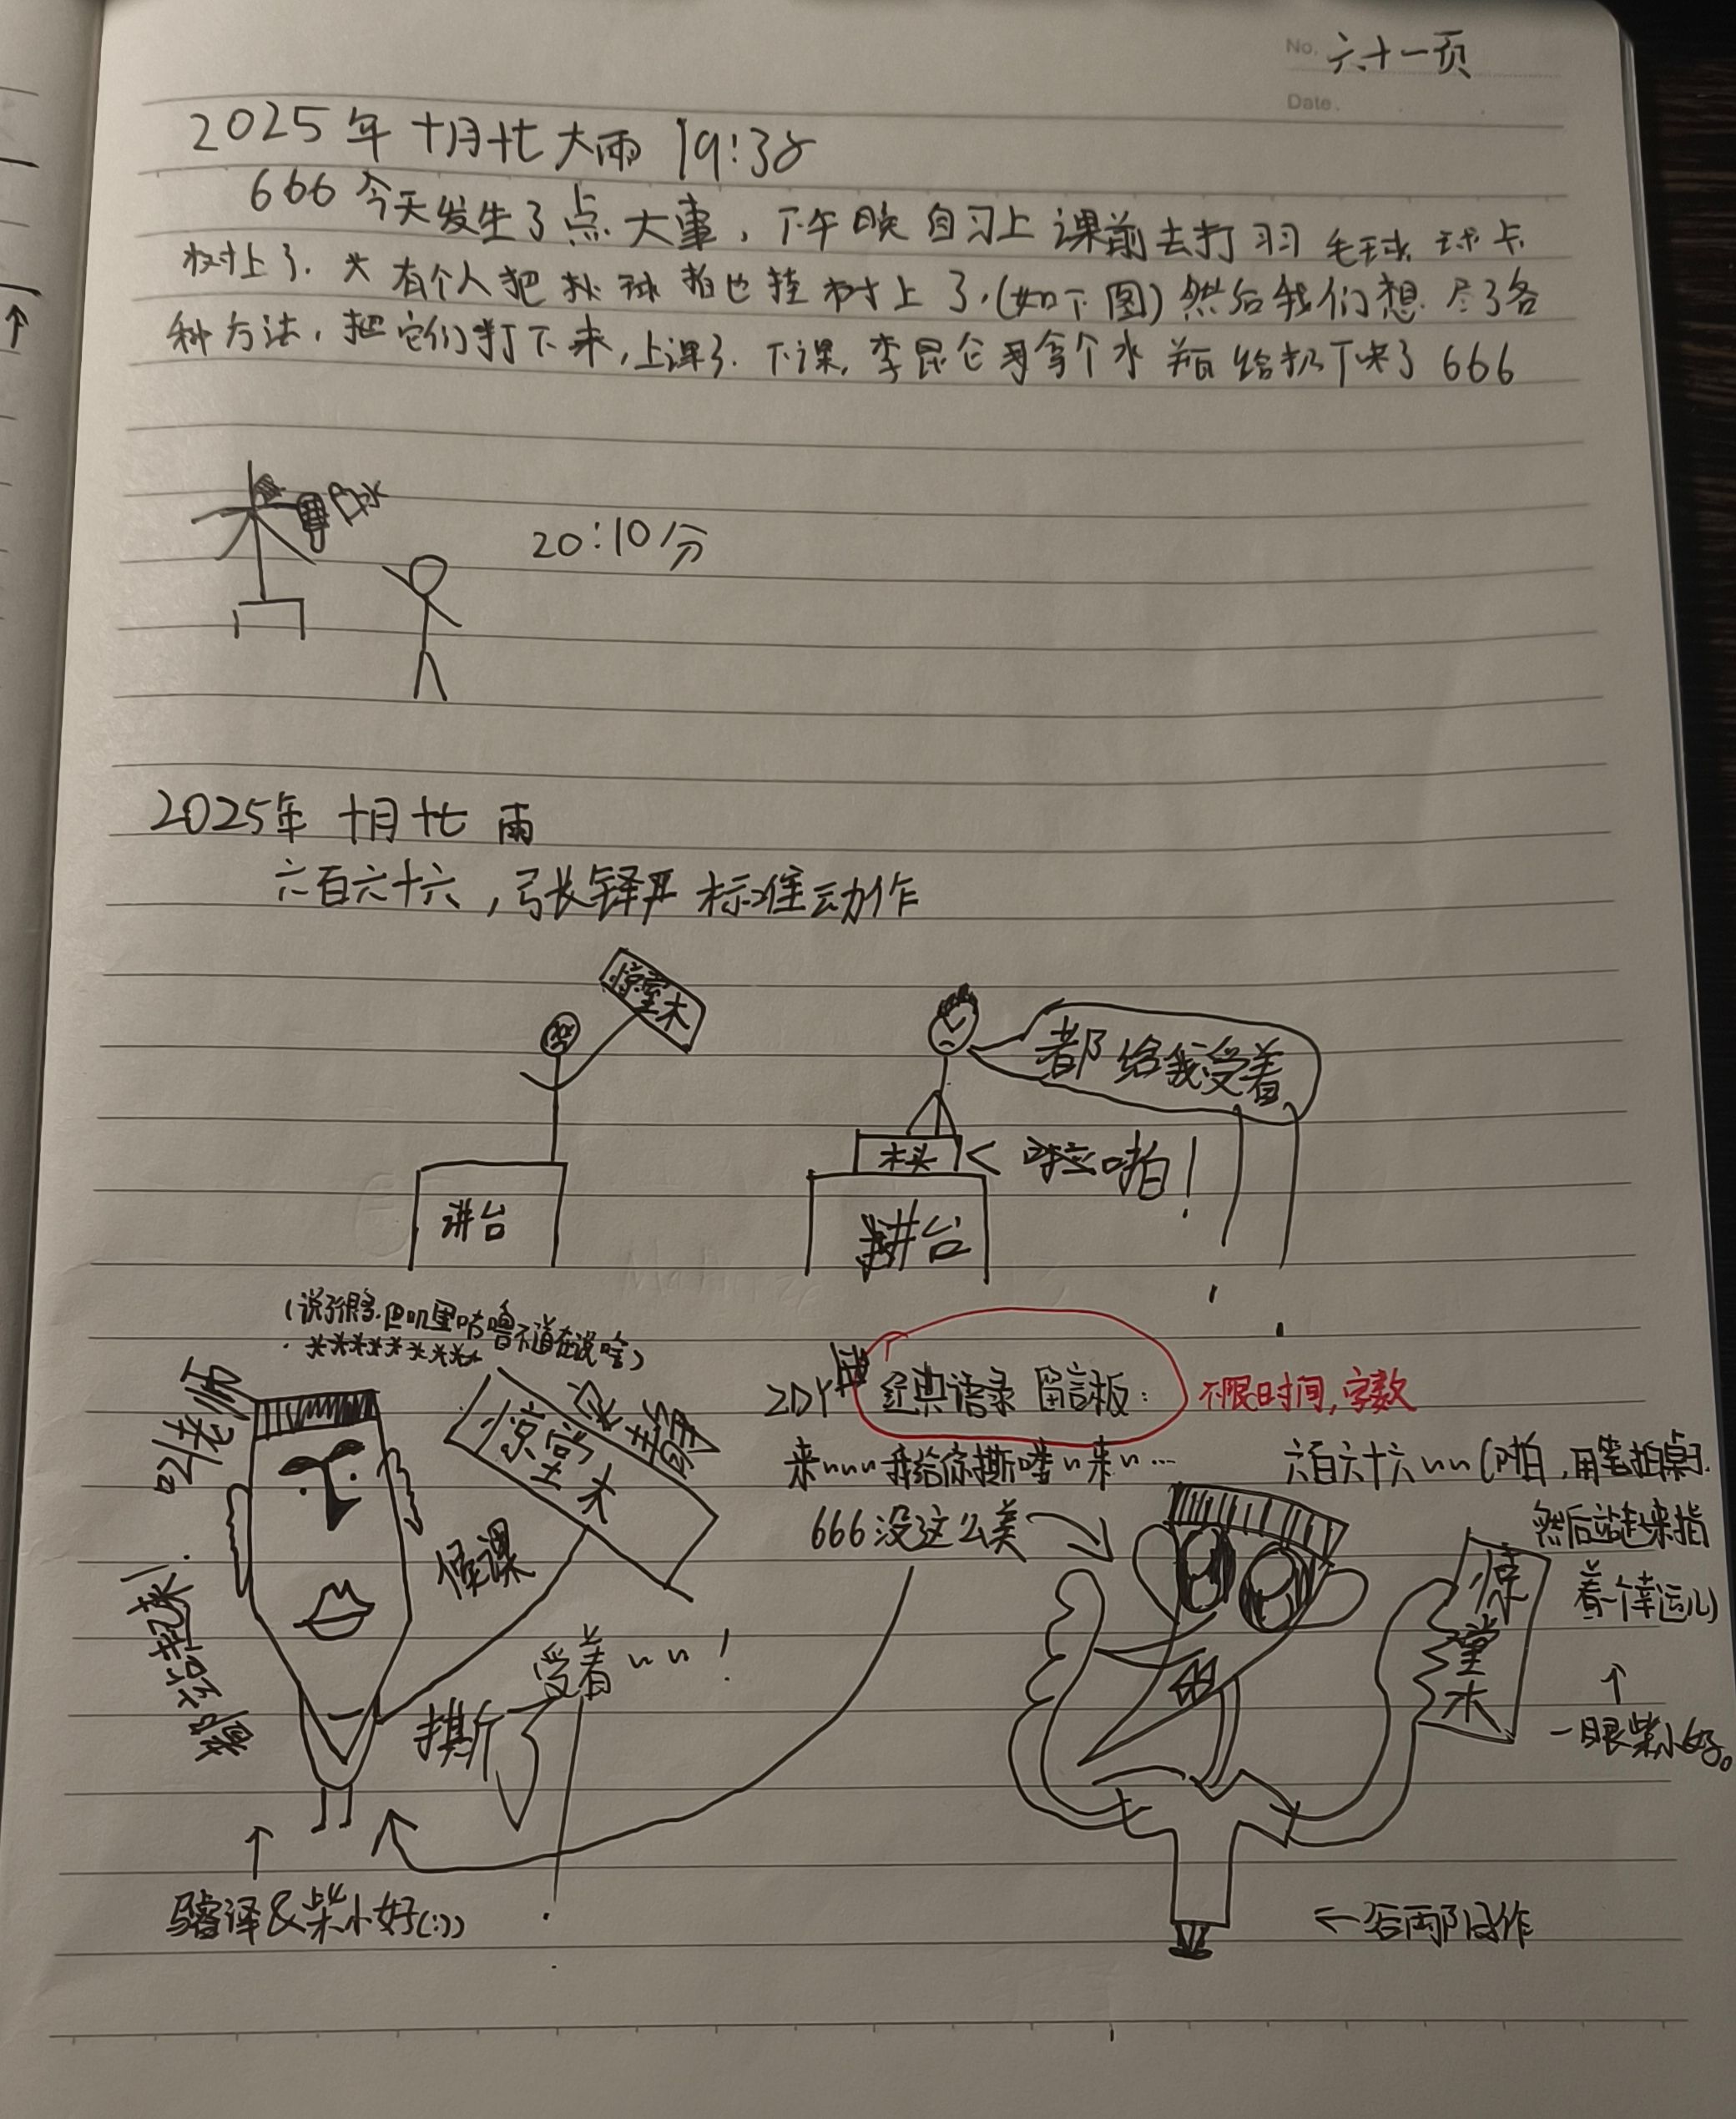 No. 六十一页
Date.
2025年 十月廿七 大雨 19:38
666 今天发生了点大事，下午晚自习上课前去打羽毛球 球卡
树上了. 有个人把 球拍也挂树上了.(如下图) 然后我们想尽了各
种方法，把它们打下来，上课了. 下课, 李昆仑 拿个水瓶给扔下来了 666
水
20:10分
2025年 十月廿七 雨
六百六十六，张铎严 标准动作
惊堂木
都给我受着
木头
啪!
讲台
讲台
(说了很多.但叽里咕噜不道在说啥)
*********
老师
惊堂木
ZDY 经典语录 留言板：
不限时间,字数
来~~~我给你撕喽~来~…
666 没这么美
六百六十六~~(啪，用笔拍桌.
然后站起来指
着一个幸运儿)
↑
一眼柴小好。
惊堂木
课
给我站起来!
撕
受着~~!
译&柴小好(:))
←后两节同作